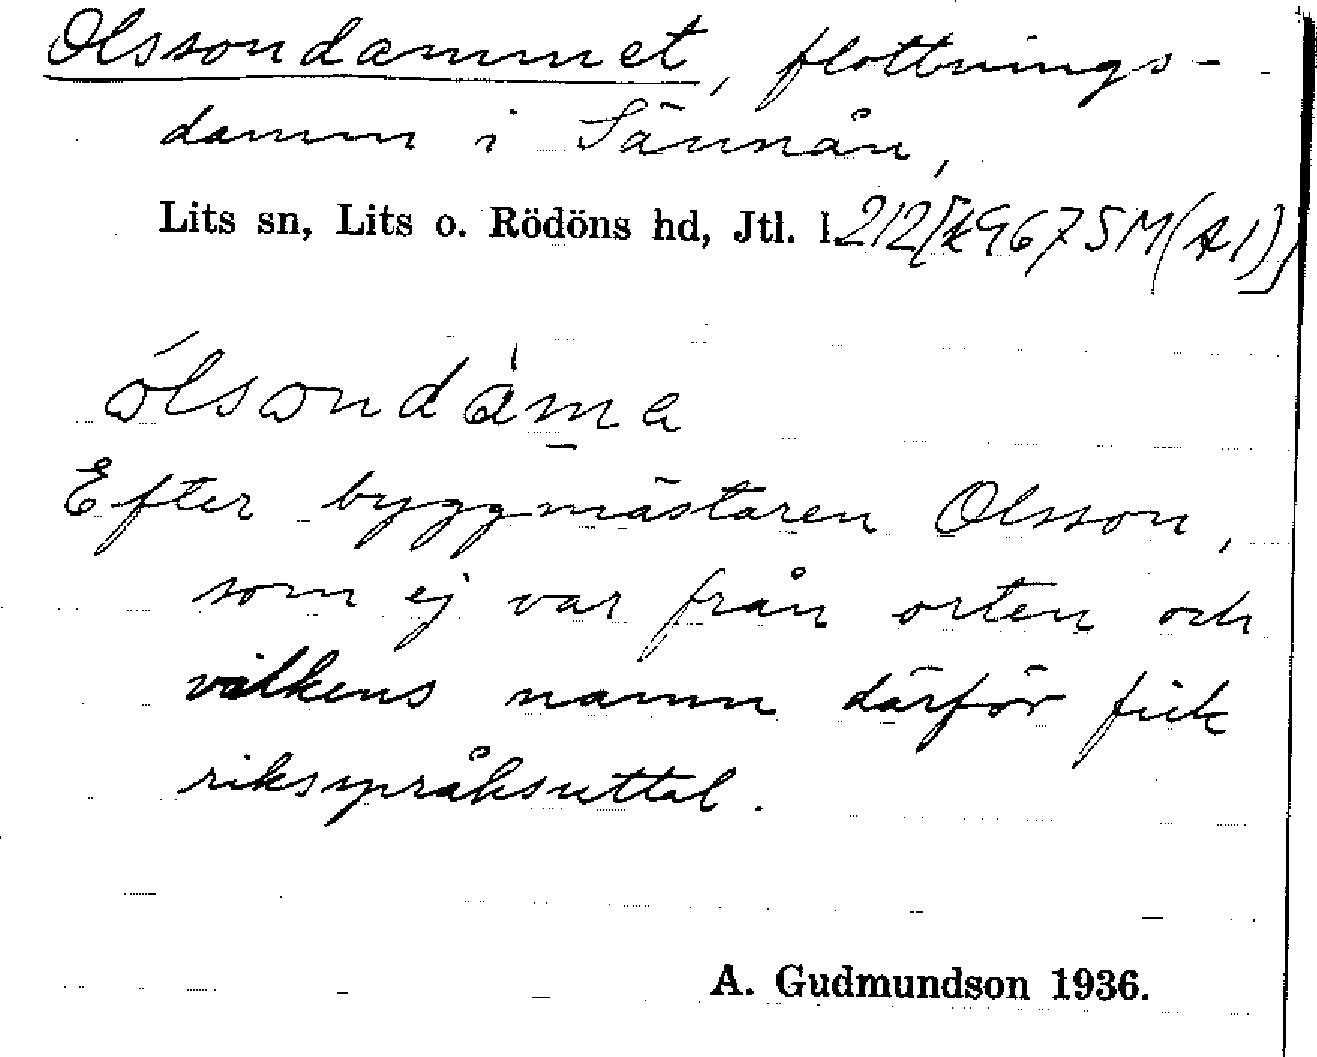 Olssondammet, flottnings-
damm i Sännån,
Lits sn, Lits o. Rödöns hd, Jtl. l.
ólsondám̲a
Efter byggmästaren Olsson,
som ej var från orten och
vilkens namn därför fick
riksspråksuttal.
A. Gudmundson 1936.